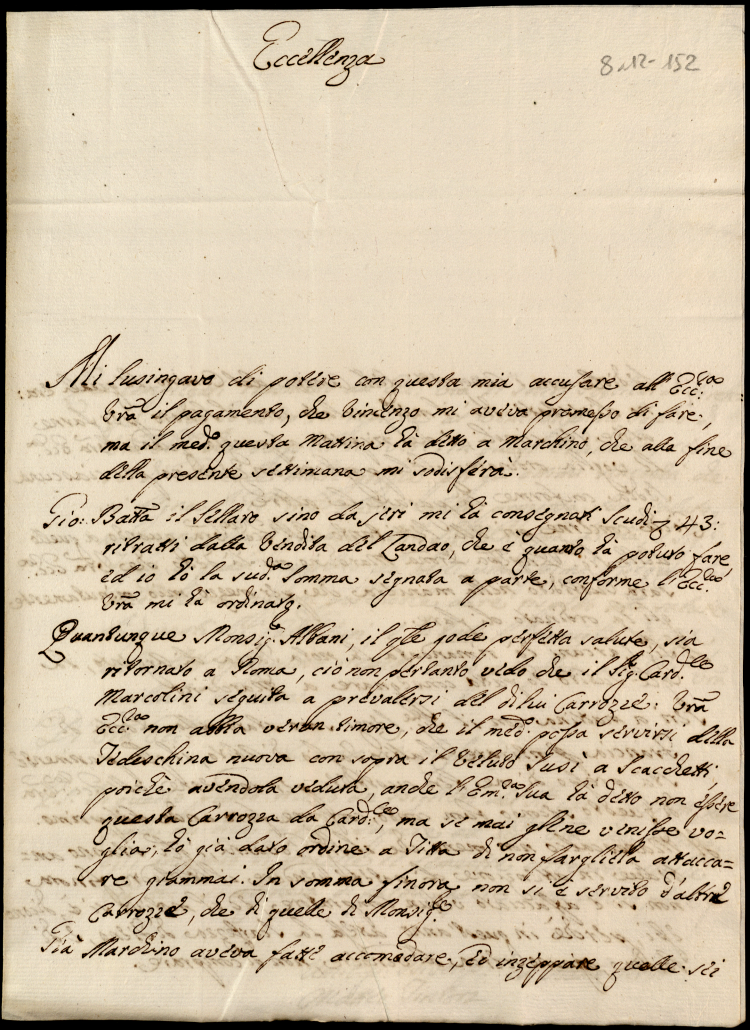 Eccellenza
8-12-152
Mi lusingavo di potere con questa mia accusare all'Ecc:za
Vrã il pagamento, che Vincenzo mi aveva promesso di fare,
ma il med.o questa mattina hà detto a Marchino, che alla fine
della presente settimana mi sodisferà.
Gio: Batta il Sellaro sino da jeri mi hà consegnati Scudi 43:
ritratti dalla vendita del Landao, che è quanto hà potuto fare
ed io hò la sud.a somma segnata a parte, conforme l'Ecc:za
Vrã mi hà ordinato.
Quantunque Monsig.e Albani, il qle gode perfetta salute, sia
ritornato a Roma, ciò non pertanto vedo che il Sig. Card.le
Marcolini seguita a prevalersi del di lui Carrozze: Vrã
Ecc:za non abbia verun timore, che il med.o possa servirsi della
Tedeschina nuova con sopra il Velluto Susì a Scacchetti
poiche avendola veduta, anche l'Em.a Sua hà detto non éssere
questa Carrozza da Card.le, ma se mai gliene venisse vo=
glia, hò già dato ordine a Titta di non fargliela attacca=
re giammai. In somma finora non si è servito d'altre
Carrozze, che di quelle di Monsig.e
Già Marchino aveva fatte accomodare, ed inzeppare quelle sei